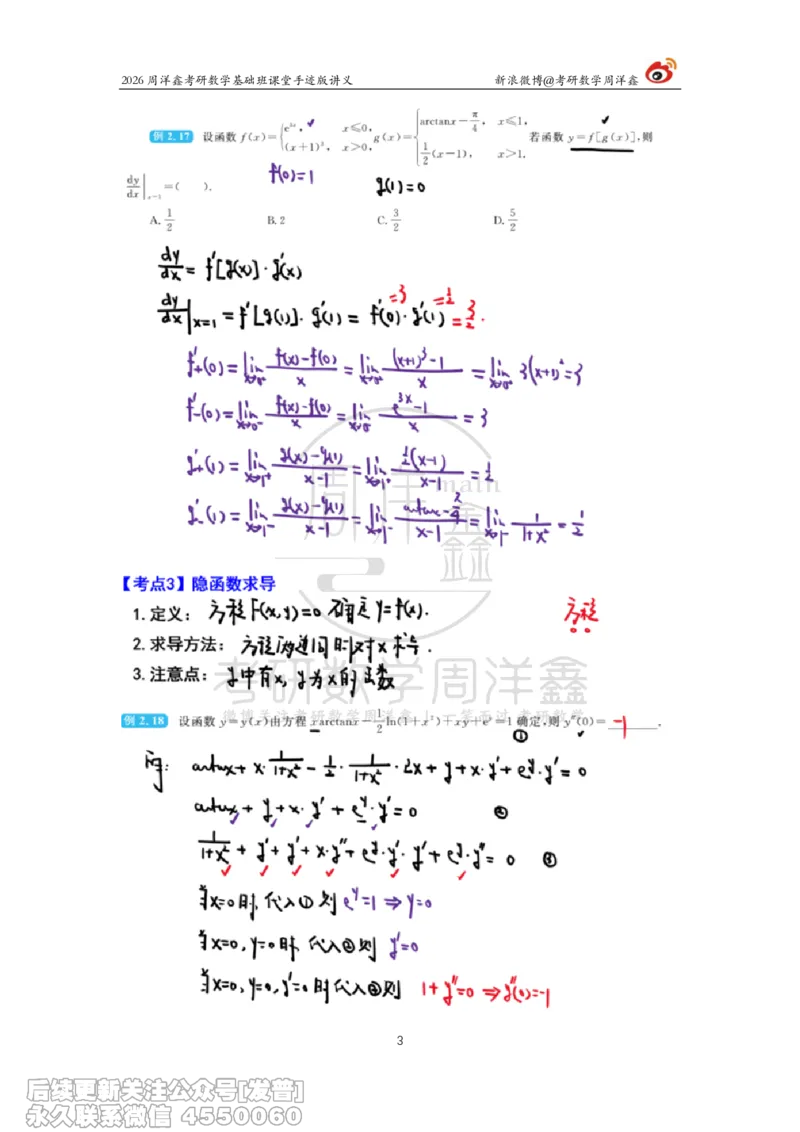 2026 周洋鑫考研数学基础班课堂手迹版讲义 新浪微博@考研数学周洋鑫
例 2.17 设函数 f(x)={e^{3x}, x≤0, (x+1)^3, x>0, g(x)={arctanx-π/4, x≤1, 1/2(x-1), x>1. 若函数 y=f[g(x)],则
f(0)=1 g(1)=0
dy/dx|x=1 =( ).
A. 1/2 B. 2 C. 3/2 D. 5/2
dy/dx = f'[g(x)]·g'(x)
dy/dx|x=1 = f'[g(1)]·g'(1) = f'(0)·g'(1) = 3/2.
=3 =1/2
f'+(0)=lim x→0+ f(x)-f(0)/x = lim x→0+ (x+1)^3-1/x = lim x→0+ 3(x+1)^2=3
f'-(0)=lim x→0- f(x)-f(0)/x = lim x→0- e^{3x}-1/x = 3
g'+(1)=lim x→1+ g(x)-g(1)/x-1 = lim x→1+ 1/2(x-1)/x-1 = 1/2
g'-(1)=lim x→1- g(x)-g(1)/x-1 = lim x→1- arctanx-π/4/x-1 = lim x→1- 1/1+x^2 = 1/2
周洋鑫
math
【考点3】隐函数求导
1. 定义: 方程F(x,y)=0 确定 y=f(x). 方程
2. 求导方法: 方程两边同时对x求导.
3. 注意点: y中有x, y为x的函数
考研数学周洋鑫
例 2.18 设函数 y=y(x)由方程 xarctanx-1/2 ln(1+x^2)+xy+e^y=1 确定,则 y''(0)= -1 .
①
解: arctanx + x·1/1+x^2 - 1/2·1/1+x^2·2x + y+x·y'+e^y·y'=0
arctanx + y+x·y'+e^y·y'=0 ②
1/1+x^2 + y'+y'+x·y''+e^y·y'·y'+e^y·y''=0 ③
当x=0时, 代入①则 e^y=1 ⇒ y=0
当x=0, y=0时, 代入②则 y'=0
当x=0, y=0, y'=0时代入③则 1+y''=0 ⇒ y''(0)=-1
3
后续更新关注公众号[发普]
永久联系微信 4550060